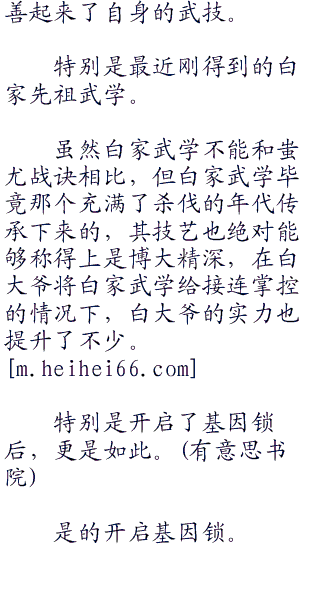 善起来了自身的武技。
特别是最近刚得到的白
家先祖武学。
虽然白家武学不能和蚩
尤战诀相比，但白家武学毕
竟那个充满了杀伐的年代传
承下来的，其技艺也绝对能
够称得上是博大精深，在白
大爷将白家武学给接连掌控
的情况下，白大爷的实力也
提升了不少。
[m.heihei66.com]
特别是开启了基因锁
后，更是如此。(有意思书
院)
是的开启基因锁。